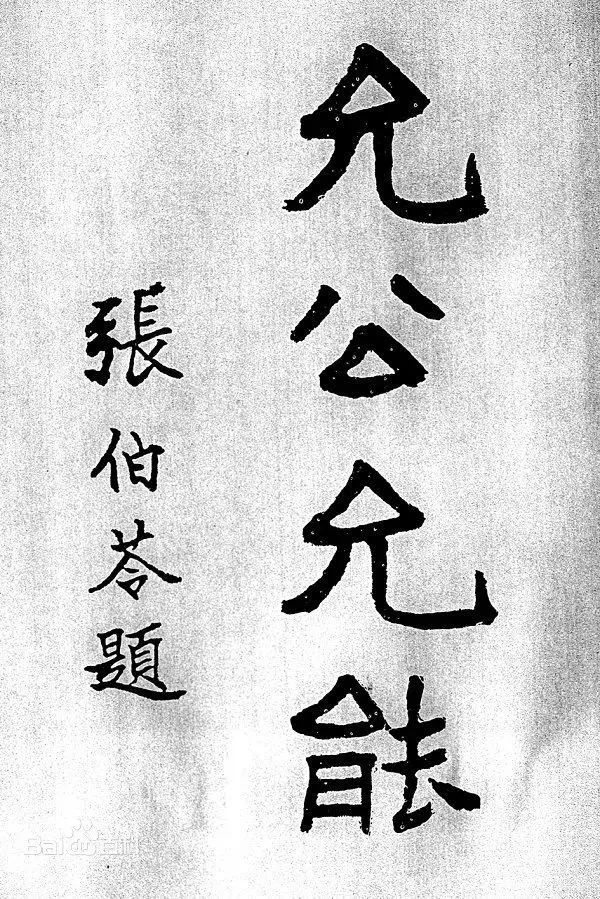 允公允能
張伯苓題
Bai百科